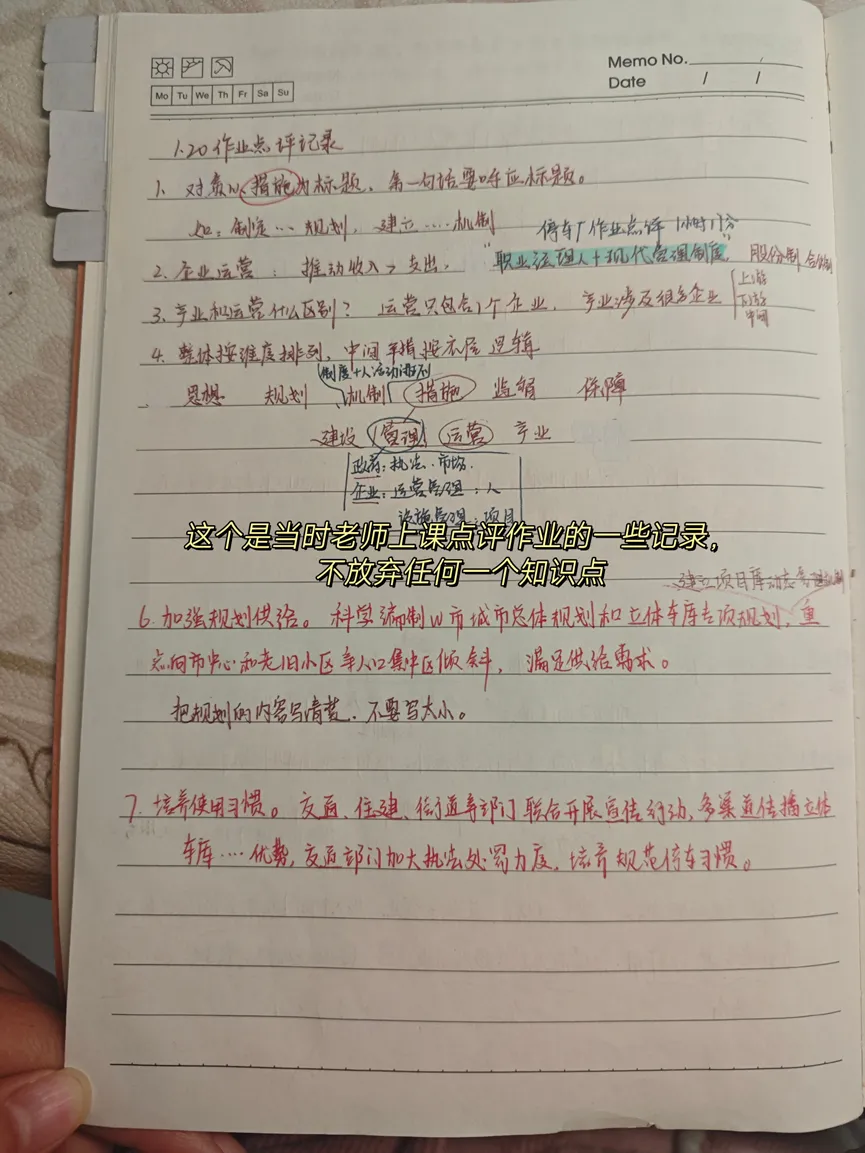 Memo No.
Date / /
Mo Tu We Th Fr Sa Su
1.20 作业点评记录
1. 对责以措施为标题,第一句话要呼应标题。
如:制定…规划,建立….机制
停车厂作业点评 1小时1分
2. 企业运营:推动收入>支出,
"职业经理人+现代管理制度" 股份制 合伙制
3. 产业和运营什么区别?运营只包含1个企业,产业涉及很多企业
上游
下游
中间
4. 整体按维度排列,中间 按 逻辑
制度+人 活动
思想 规划 机制 措施 监督 保障
建设 管理 运营 产业
政府:执法.市场.
企业:运营管理:人
设施管理:项目
这个是当时老师上课点评作业的一些记录,
不放弃任何一个知识点
建立项目库动态管理机制
6. 加强规划供给。科学编制W市城市总体规划和立体车库专项规划,重
点向市中心和老旧小区等人口集中区倾斜,满足供给需求。
把规划的内容写清楚.不要写太小。
7. 培养使用习惯。交通、住建、街道等部门联合开展宣传行动,多渠道传播立体
车库….优势,交通部门加大执法处罚力度,培养规范停车习惯。